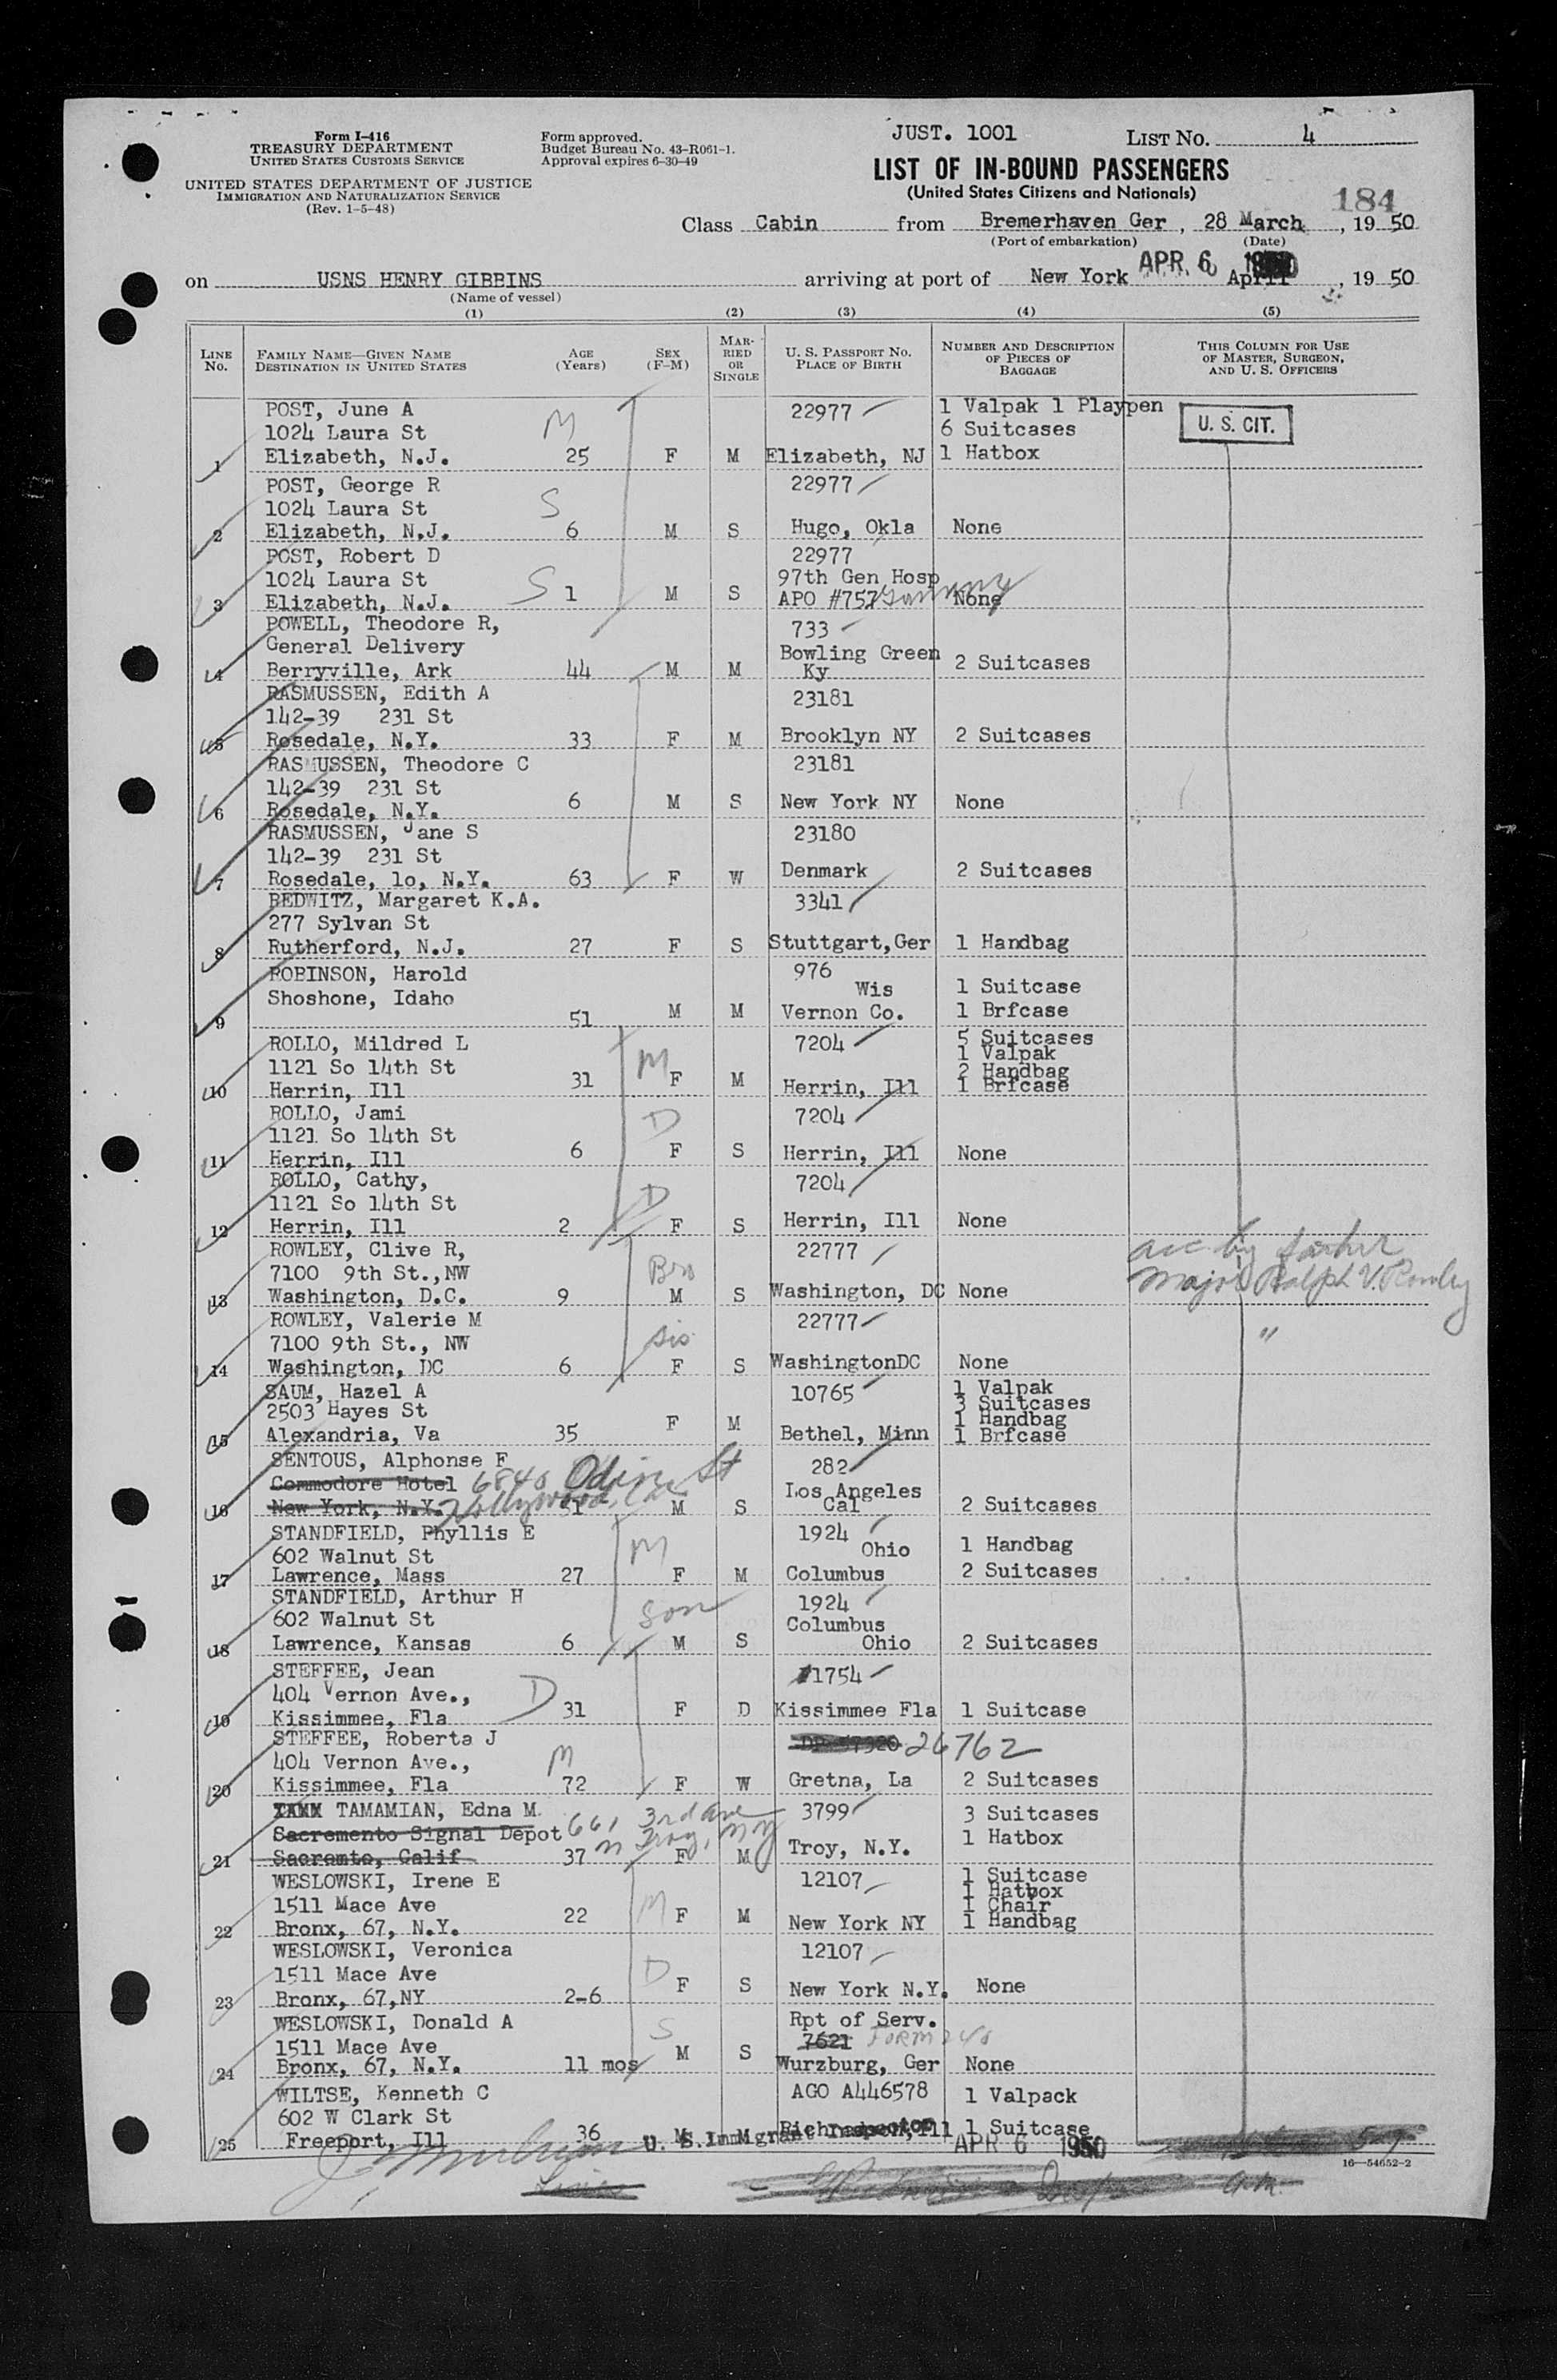 Form I-416
TREASURY DEPARTMENT
UNITED STATES CUSTOMS SERVICE
UNITED STATES DEPARTMENT OF JUSTICE
IMMIGRATION AND NATURALIZATION SERVICE
(Rev. 1-5-48)
Form approved.
Budget Bureau No. 43-R061-1.
Approval expires 6-30-49
JUST. 1001
LIST NO. 4
LIST OF IN-BOUND PASSENGERS
(United States Citizens and Nationals)
184
Class Cabin from Bremerhaven Ger, 28 March, 1950
(Port of embarkation) (Date)
on USNS HENRY GIBBINS arriving at port of New York APR. 6 1950 April, 1950
(Name of vessel)
(1) (2) (3) (4) (5)
LINE NO.
FAMILY NAME—GIVEN NAME
DESTINATION IN UNITED STATES
AGE (Years)
SEX (F-M)
MARRIED OR SINGLE
U. S. PASSPORT NO.
PLACE OF BIRTH
NUMBER AND DESCRIPTION OF PIECES OF BAGGAGE
THIS COLUMN FOR USE OF MASTER, SURGEON, AND U. S. OFFICERS
POST, June A 22977 1 Valpak 1 Playpen
1024 Laura St M 6 Suitcases U. S. CIT.
1 Elizabeth, N.J. 25 F M Elizabeth, NJ 1 Hatbox
POST, George R 22977
1024 Laura St S
2 Elizabeth, N.J. 6 M S Hugo, Okla None
POST, Robert D 22977
1024 Laura St S 97th Gen Hosp
3 Elizabeth, N.J. 1 M S APO #757 Germany None
POWELL, Theodore R, 733
General Delivery Bowling Green
4 Berryville, Ark 44 M M Ky 2 Suitcases
RASMUSSEN, Edith A 23181
142-39 231 St
5 Rosedale, N.Y. 33 F M Brooklyn NY 2 Suitcases
RASMUSSEN, Theodore C 23181
142-39 231 St
6 Rosedale, N.Y. 6 M S New York NY None
RASMUSSEN, Jane S 23180
142-39 231 St
7 Rosedale, lo, N.Y. 63 F W Denmark 2 Suitcases
REDWITZ, Margaret K.A. 3341
277 Sylvan St
8 Rutherford, N.J. 27 F S Stuttgart,Ger 1 Handbag
ROBINSON, Harold 976
Shoshone, Idaho Wis 1 Suitcase
9 51 M M Vernon Co. 1 Brfcase
ROLLO, Mildred L 7204 5 Suitcases
1121 So 14th St M 1 Valpak
2 Handbag
10 Herrin, Ill 31 F M Herrin, Ill 1 Brfcase
ROLLO, Jami 7204
1121 So 14th St D
11 Herrin, Ill 6 F S Herrin, Ill None
ROLLO, Cathy, 7204
1121 So 14th St D
12 Herrin, Ill 2 F S Herrin, Ill None
ROWLEY, Clive R, 22777 acc by father
7100 9th St.,NW Bro Major Ralph V. Rowley
13 Washington, D.C. 9 M S Washington, DC None
ROWLEY, Valerie M 22777 "
7100 9th St., NW sis
14 Washington, DC 6 F S WashingtonDC None
SAUM, Hazel A 10765 1 Valpak
2503 Hayes St 3 Suitcases
1 Handbag
15 Alexandria, Va 35 F M Bethel, Minn 1 Brfcase
SENTOUS, Alphonse F 282
Commodore Hotel 6840 Odin St Los Angeles
16 New York, N.Y. Hollywood, Cal 51 M S Cal 2 Suitcases
STANDFIELD, Phyllis E 1924
602 Walnut St M Ohio 1 Handbag
17 Lawrence, Mass 27 F M Columbus 2 Suitcases
STANDFIELD, Arthur H 1924
602 Walnut St Son Columbus
18 Lawrence, Kansas 6 M S Ohio 2 Suitcases
STEFFEE, Jean 11754
404 Vernon Ave., D
19 Kissimmee, Fla 31 F D Kissimmee Fla 1 Suitcase
STEFFEE, Roberta J 26762
404 Vernon Ave., M
20 Kissimmee, Fla 72 F W Gretna, La 2 Suitcases
TAMAMIAN, Edna M. 3799 3 Suitcases
Sacremento Signal Depot 661 3rd Ave 1 Hatbox
21 Sacramto, Calif n Troy, NY 37 F M Troy, N.Y.
WESLOWSKI, Irene E 12107 1 Suitcase
1 Hatbox
1511 Mace Ave M 1 Chair
22 Bronx, 67, N.Y. 22 F M New York NY 1 Handbag
WESLOWSKI, Veronica 12107
1511 Mace Ave D
23 Bronx, 67,NY 2-6 F S New York N.Y. None
WESLOWSKI, Donald A Rpt of Serv.
1511 Mace Ave S 7621 FORM 240
24 Bronx, 67, N.Y. 11 mos M S Wurzburg, Ger None
WILTSE, Kenneth C AGO A446578 1 Valpack
602 W Clark St
25 Freeport, Ill 36 M M Ill 1 Suitcase
U. S. Immigrant Inspector APR 6 1950
16—54652-2